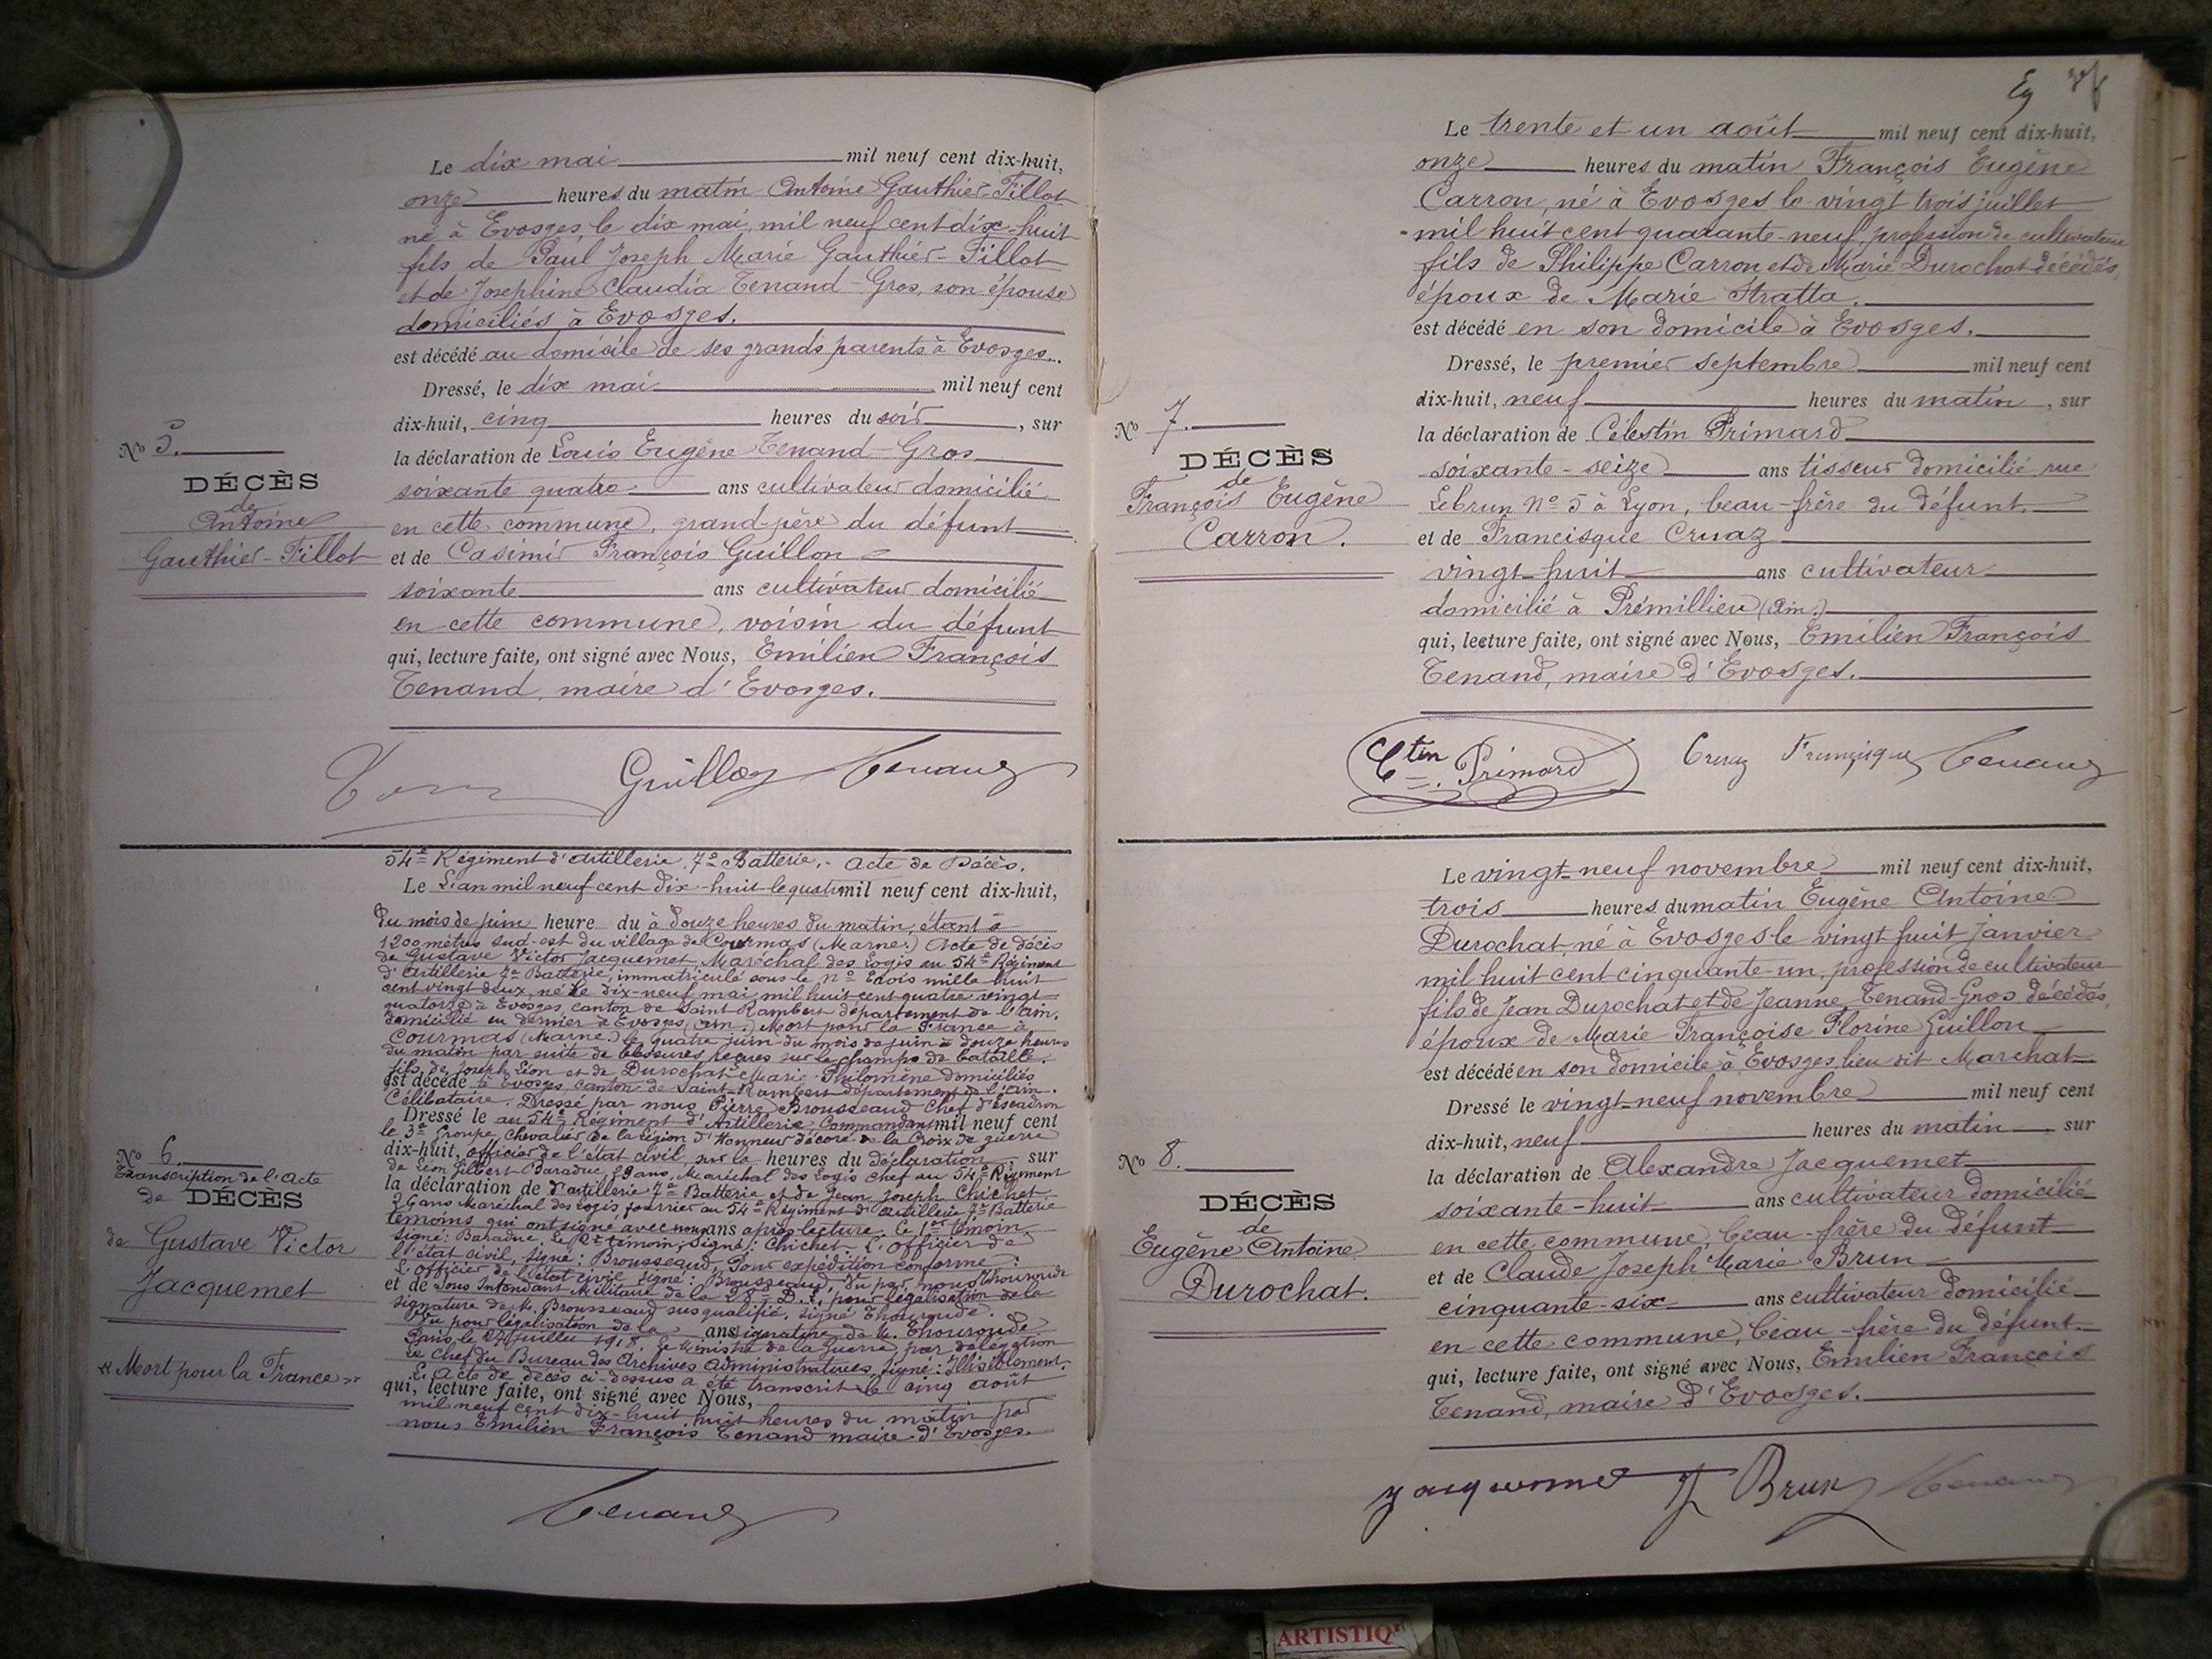 Le dix mai mil neuf cent dix-huit,
onze heures du matin Antoine Gauthier-Tillot
né à Evosges, le dix mai, mil neuf cent dix-huit
fils de Paul Joseph Marie Gauthier-Tillot
et de Josephine Claudia Tenand-Gros, son épouse
domiciliés à Evosges.
est décédé au domicile de ses grands parents à Evosges.
Dressé, le dix mai mil neuf cent
dix-huit, cinq heures du soir, sur
la déclaration de Louis Eugène Tenand-Gros
soixante quatre ans cultivateur domicilié
en cette commune, grand-père du défunt
et de Casimir François Guillon
soixante ans cultivateur domicilié
en cette commune, voisin du défunt
qui, lecture faite, ont signé avec Nous, Emilien François
Tenand, maire d'Evosges.
Guillon Tenand
No 5.
DÉCÈS
de
Antoine
Gauthier-Tillot
54e Régiment d'artillerie, 7e Batterie. - Acte de Décès.
Le L'an mil neuf cent dix-huit le quatre mil neuf cent dix-huit,
du mois de juin heure du à douze heures du matin, étant à
1200 mètres sud-est du village de Courmas (Marne.) Acte de décès
de Gustave Victor Jacquemet, Maréchal des Logis au 54e Régiment
d'artillerie 7e Batterie, immatriculé sous le No trois mille huit
cent vingt deux, né le dix-neuf mai, mil huit cent quatre vingt
quatorze à Evosges, canton de Saint-Rambert département de l'Ain.
domicilié en dernier à Evosges (Ain.) Mort pour la France à
Courmas (Marne.) le quatre juin du mois de juin à douze heures
du matin par suite de blessures reçues sur le champs de bataille.
fils de Joseph Léon et de Durochat Marie Philomène domiciliés
est décédé à Evosges, canton de Saint-Rambert département de l'Ain.
Célibataire. Dressé par nous Pierre Brousseaud Chef d'Escadron
Dressé le au 54e Régiment d'Artillerie, Commandant mil neuf cent
le 3e Groupe, Chevalier de la Légion d'Honneur décoré de la Croix de guerre
dix-huit, officier de l'état civil, sur la heures du déclaration, sur
de Léon Gilbert Baraduc, ans, Maréchal des Logis Chef au 54e Régiment
la déclaration de d'artillerie 7e Batterie et de Jean Joseph Chichet
26 ans Maréchal des logis fourrier au 54e Régiment d'Artillerie 7e Batterie
témoins qui ont signé avec nous ans après lecture. Le 1er témoin
signé: Baraduc. Le 2e témoin, signé: Chichet. L'officier de
l'état civil, signé: Brousseaud, Pour expédition conforme:
L'officier de l'état civil signé: Brousseaud, Vu par nous Thouroude
et de Sous Intendant Militaire de la 28e D.I. pour légalisation de la
signature de M. Brousseaud susqualifié. signé Thouroude.
Vu pour légalisation de la ans signature de M. Thouroude
Paris, le 27 juillet 1918. Le Ministre de la Guerre, par délégation
Le Chef du Bureau des Archives administratives, signé: Illisiblement.
L'Acte de décès ci-dessus a été transcrit le cinq août
qui, lecture faite, ont signé avec Nous,
mil neuf cent dix-huit huit heures du matin par
nous Emilien François Tenand maire d'Evosges.
Tenand
No 6.
Transcription de l'Acte
de DÉCÈS
de Gustave Victor
Jacquemet
« Mort pour la France »
Le trente et un août mil neuf cent dix-huit,
onze heures du matin François Eugène
Carron, né à Evosges le vingt trois juillet
mil huit cent quarante-neuf, profession de cultivateur
fils de Philippe Carron et de Marie Durochat décédés,
époux de Marie Stratta.
est décédé en son domicile à Evosges.
Dressé, le premier septembre mil neuf cent
dix-huit, neuf heures du matin, sur
la déclaration de Célestin Primard
soixante-seize ans tisseur domicilié rue
Lebrun No 5 à Lyon, beau-frère du défunt.
et de Francisque Cruaz
vingt-huit ans cultivateur
domicilié à Prémillieu (Ain.)
qui, lecture faite, ont signé avec Nous, Emilien François
Tenand, maire d'Evosges.
Ctin Primard Cruaz Francisque Tenand
No 7.
DÉCÈS
de
François Eugène
Carron.
Le vingt-neuf novembre mil neuf cent dix-huit,
trois heures du matin Eugène Antoine
Durochat, né à Evosges le vingt huit janvier
mil huit cent cinquante-un, profession de cultivateur
fils de Jean Durochat et de Jeanne Tenand-Gros décédés,
époux de Marie Françoise Florine Guillon
est décédé en son domicile à Evosges, lieu dit Marchat
Dressé le vingt-neuf novembre mil neuf cent
dix-huit, neuf heures du matin sur
la déclaration de Alexandre Jacquemet
soixante-huit ans cultivateur domicilié
en cette commune, beau-frère du défunt
et de Claude Joseph Marie Brun
cinquante-six ans cultivateur domicilié
en cette commune, beau-frère du défunt.
qui, lecture faite, ont signé avec Nous, Emilien François
Tenand, maire d'Evosges.
Jacquemet Brun Tenand
No 8.
DÉCÈS
de
Eugène Antoine
Durochat.
ARTISTIQ